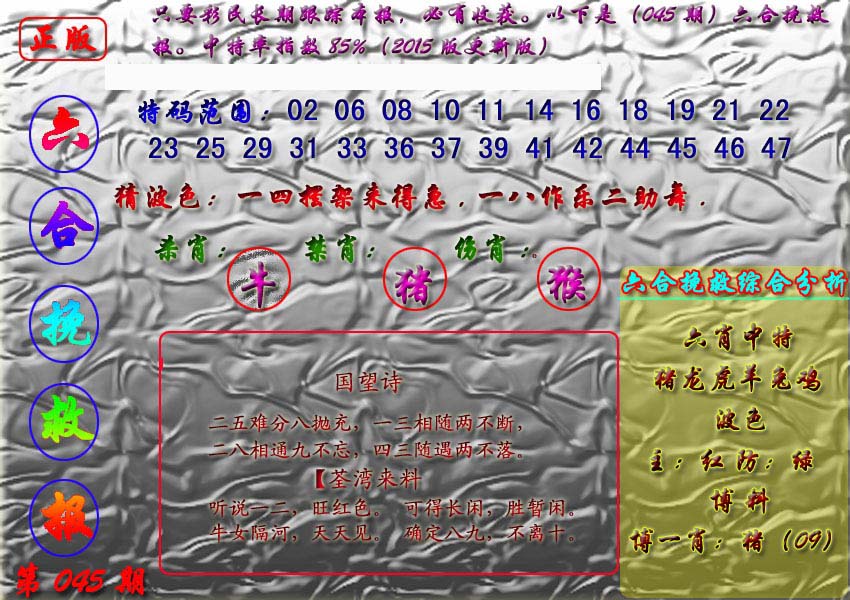 正版
只要彩民长期跟踪本报，必有收获。以下是（045期）六合挽救
报。中特率指数85%（2015版更新版）
六
合
挽
救
报
第045期
特码范围：02 06 08 10 11 14 16 18 19 21 22
23 25 29 31 33 36 37 39 41 42 44 45 46 47
猜波色：一四摆架来得急．一八作乐二助舞．
杀肖：牛 禁肖：猪 伤肖：猴
国望诗
二五难分八抛充，一三相随两不断，
二八相通九不忘，四三随遇两不落。
【荃湾来料
听说一二，旺红色。 可得长闲，胜暂闲。
牛女隔河，天天见。 确定八九，不离十。
六合挽救综合分析
六肖中特
猪龙虎羊兔鸡
波色
主：红防：绿
博料
博一肖：猪（09）